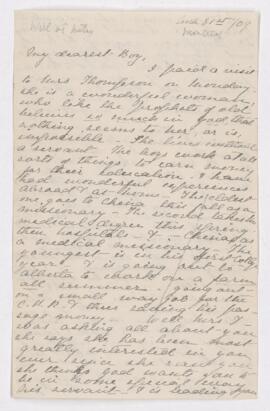 31st /09
My dearest Boy,
I paid a visit
to Mrs Thompson on Monday
she is a wonderful woman,
who like the prophets of old
believes so much in God that
nothing seems to her, or is,
impossible - She lives without
a servant The boys work at all
sorts of things to earn money
for their education. & have
had wonderful experiences
abroad & at home. The oldest
one, goes to China this fall as a
missionary - The second takes his
medical degree this spring
then hospitals & - China as
a medical missionary - The
youngest is in his first College
year & is going next to
Alberta to work on a farm
all summer. going out
on a small way job for the
C.P.R. & thus
money - Well Mrs T
was asking all about you
she says she has been most
greatly interested in you
ever since she saw you
she thinks God wants you to
be in some special way
his servant. & is leading you